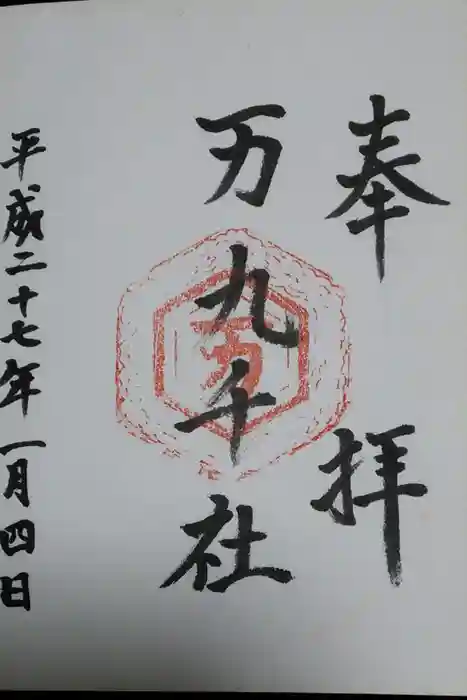 奉拝
万九千社
平成二十七年一月四日